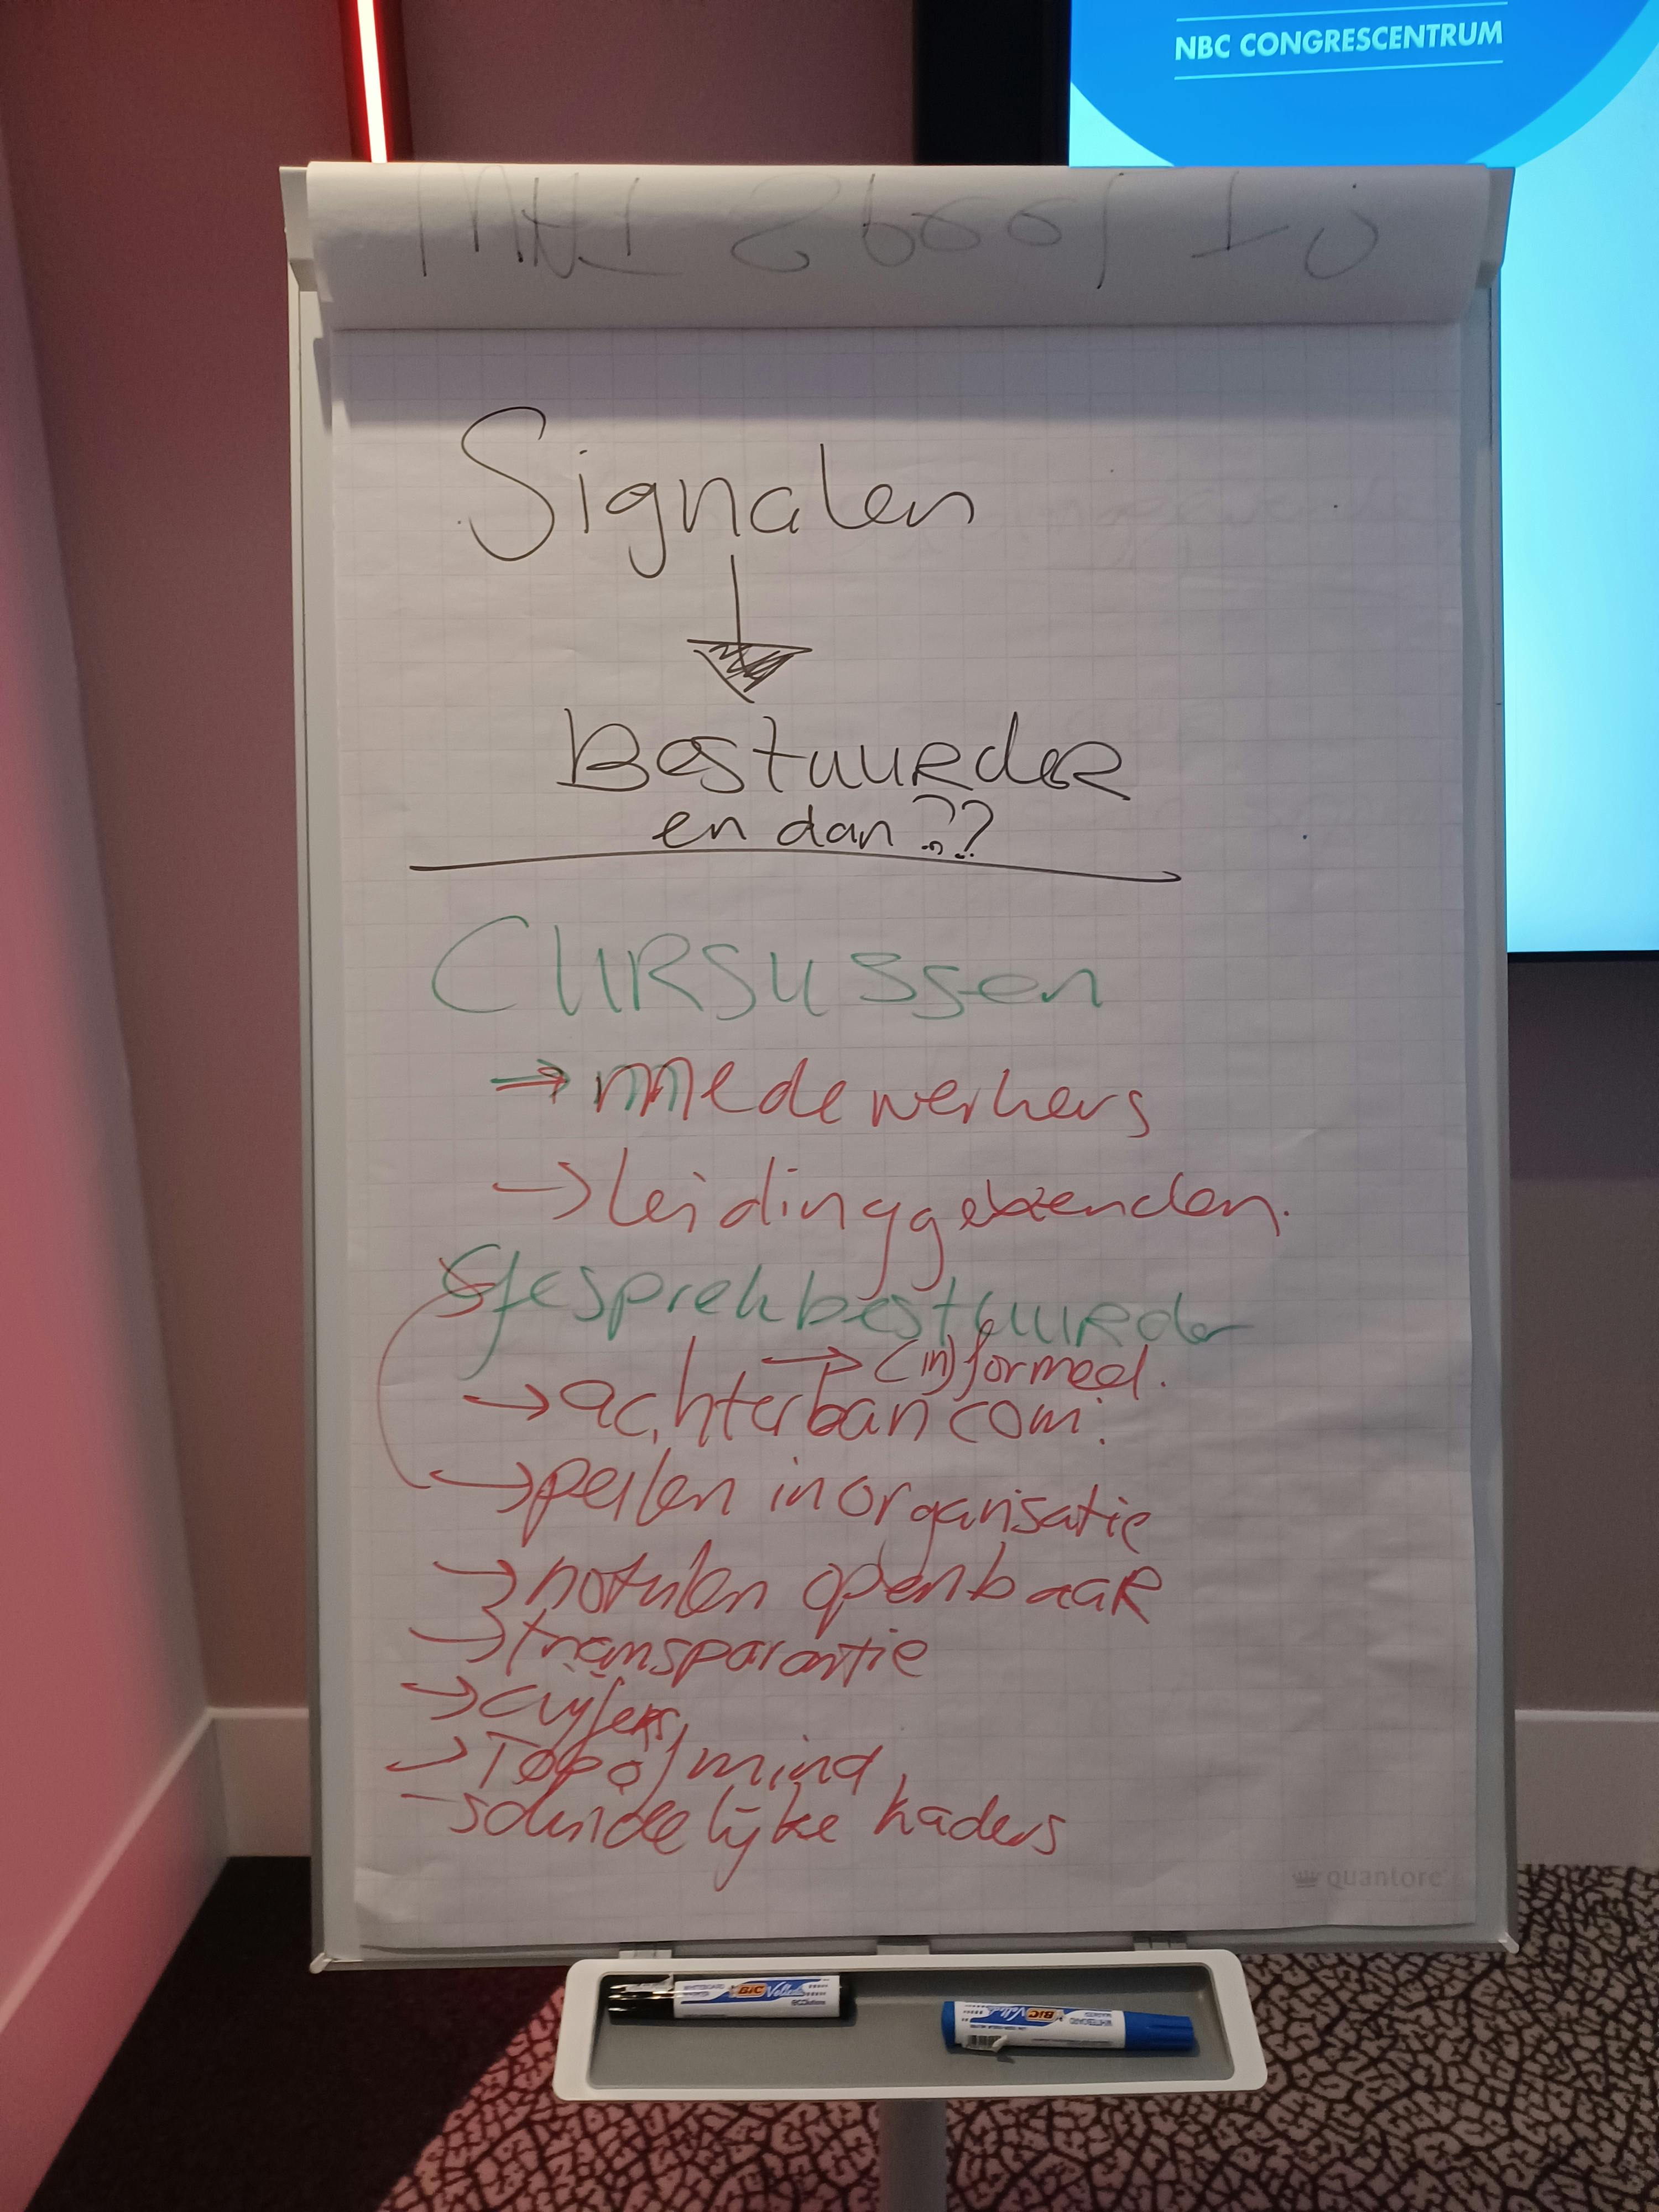 NBC CONGRESCENTRUM
Signalen
Bestuurder
en dan??
Cursussen
⇒ medewerkers
→ leidinggevenden.
Gesprek bestuurder
→ (in)formeel.
→ achterban com.
→ peilen in organisatie
→ notulen openbaar
→ transparantie
→ cijfers
→ Top of mind
- schriftelijke kaders
quantore
BIC Velleda
BIC Velleda